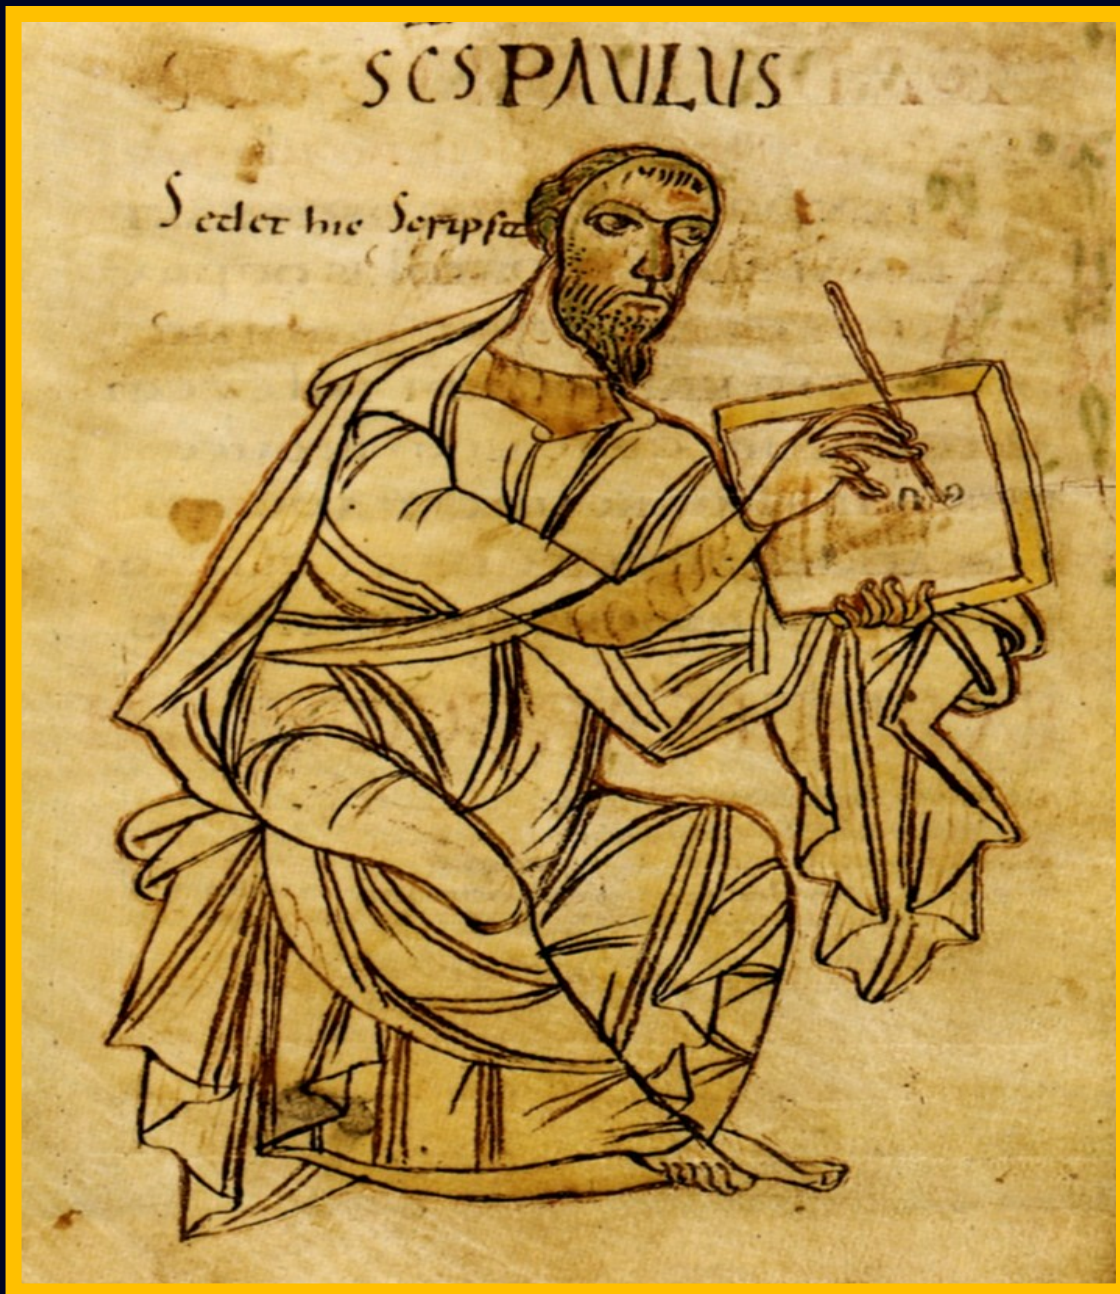 SCS PAULUS
Sedet hic Scripsit